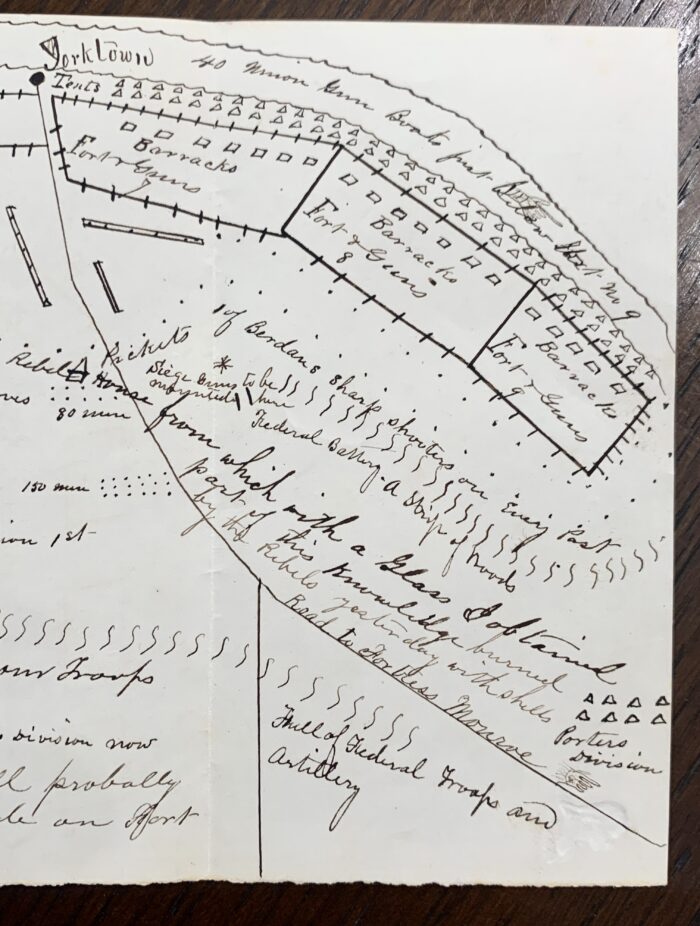 Yorktown
40 Union Gun Boats just below Fort No 9
Tents
Barracks
Fort & Guns
7
Barracks
Fort & Guns
8
Barracks
Fort & Guns
9
Pickets 1 of Berdans Sharp shooters on Every Post
Siege Guns to be
mounted here
Federal Battery - A Strip of Woods
Rebel
House from which with a Glass I obtained
part of this Knowledge burned
by the Rebels yesterday with shells
Road to Fortress Monroe
80 men
150 men
ion 1st
our Troops
Division now
ll probably
on Fort
Full of Federal Troops and
Artillery
Porters
Division